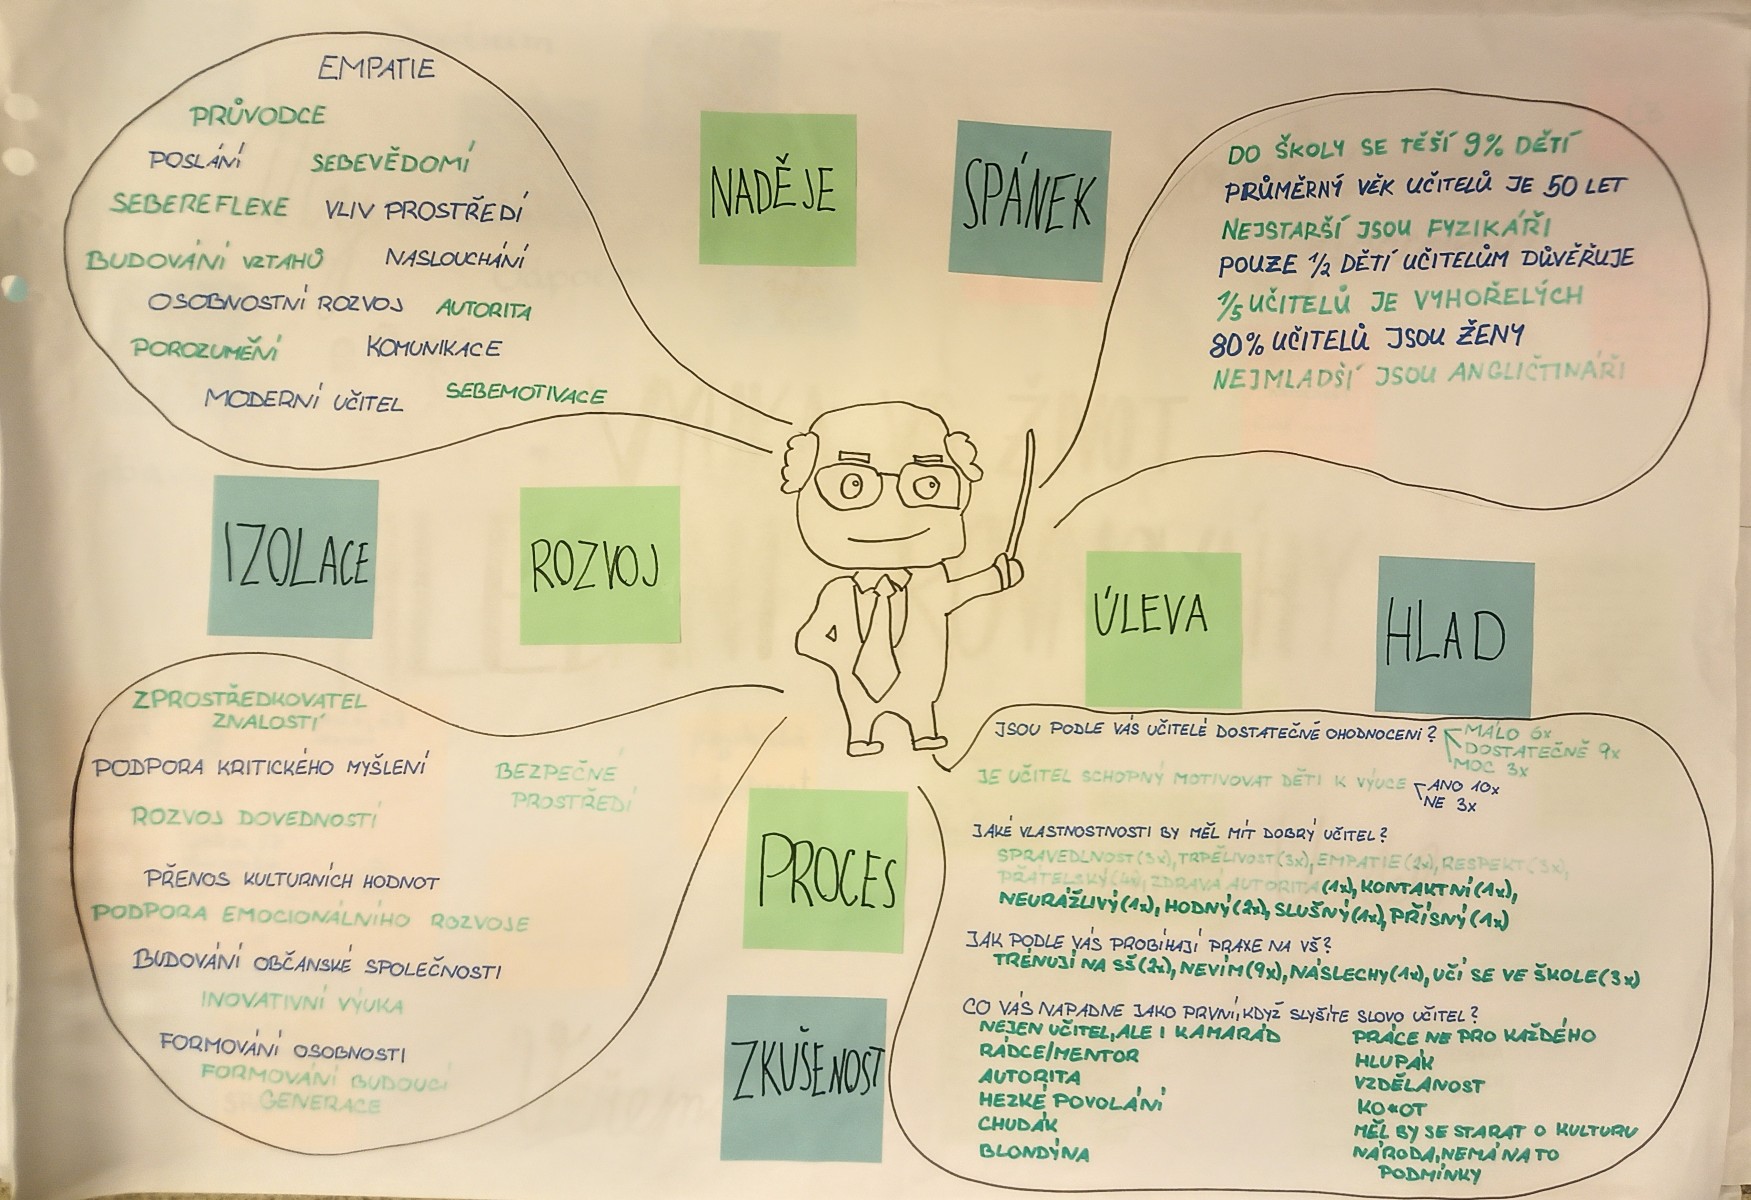 EMPATIE
PRŮVODCE
POSLÁNÍ SEBEVĚDOMÍ
SEBEREFLEXE VLIV PROSTŘEDÍ
BUDOVÁNÍ VZTAHŮ NASLOUCHÁNÍ
OSOBNOSTNÍ ROZVOJ AUTORITA
POROZUMĚNÍ KOMUNIKACE
MODERNÍ UČITEL SEBEMOTIVACE
NADĚJE
SPÁNEK
DO ŠKOLY SE TĚŠÍ 9% DĚTÍ
PRŮMĚRNÝ VĚK UČITELŮ JE 50 LET
NEJSTARŠÍ JSOU FYZIKÁŘI
POUZE 1/2 DĚTÍ UČITELŮM DŮVĚŘUJE
1/5 UČITELŮ JE VYHOŘELÝCH
80% UČITELŮ JSOU ŽENY
NEJMLADŠÍ JSOU ANGLIČTINÁŘI
IZOLACE
ROZVOJ
ÚLEVA
HLAD
ZPROSTŘEDKOVATEL
ZNALOSTÍ
PODPORA KRITICKÉHO MYŠLENÍ
BEZPEČNÉ
PROSTŘEDÍ
ROZVOJ DOVEDNOSTÍ
PŘENOS KULTURNÍCH HODNOT
PODPORA EMOCIONÁLNÍHO ROZVOJE
BUDOVÁNÍ OBČANSKÉ SPOLEČNOSTI
INOVATIVNÍ VÝUKA
FORMOVÁNÍ OSOBNOSTI
FORMOVÁNÍ BUDOUCÍ
GENERACE
PROCES
ZKUŠENOST
JSOU PODLE VÁS UČITELÉ DOSTATEČNĚ OHODNOCENI?
MÁLO 6x
DOSTATEČNĚ 9x
MOC 3x
JE UČITEL SCHOPNÝ MOTIVOVAT DĚTI K VÝUCE
ANO 10x
NE 3x
JAKÉ VLASTNOSTNOSTI BY MĚL MÍT DOBRÝ UČITEL?
SPRAVEDLNOST(3x), TRPĚLIVOST(3x), EMPATIE(2x), RESPEKT(3x),
PŘÁTELSKÝ(4x), ZDRAVÁ AUTORITA(1x), KONTAKTNÍ(1x),
NEURÁŽLIVÝ(1x), HODNÝ(2x), SLUŠNÝ(1x), PŘÍSNÝ(1x)
JAK PODLE VÁS PROBÍHAJÍ PRAXE NA VŠ?
TRÉNUJÍ NA SŠ(2x), NEVÍM(9x), NÁSLECHY(1x), UČÍ SE VE ŠKOLE(3x)
CO VÁS NAPADNE JAKO PRVNÍ, KDYŽ SLYŠÍTE SLOVO UČITEL?
NEJEN UČITEL, ALE I KAMARÁD
RÁDCE/MENTOR
AUTORITA
HEZKÉ POVOLÁNÍ
CHUDÁK
BLONDÝNA
PRÁCE NE PRO KAŽDÉHO
HLUPÁK
VZDĚLANOST
KO*OT
MĚL BY SE STARAT O KULTURU
NÁRODA, NEMÁ NA TO
PODMÍNKY